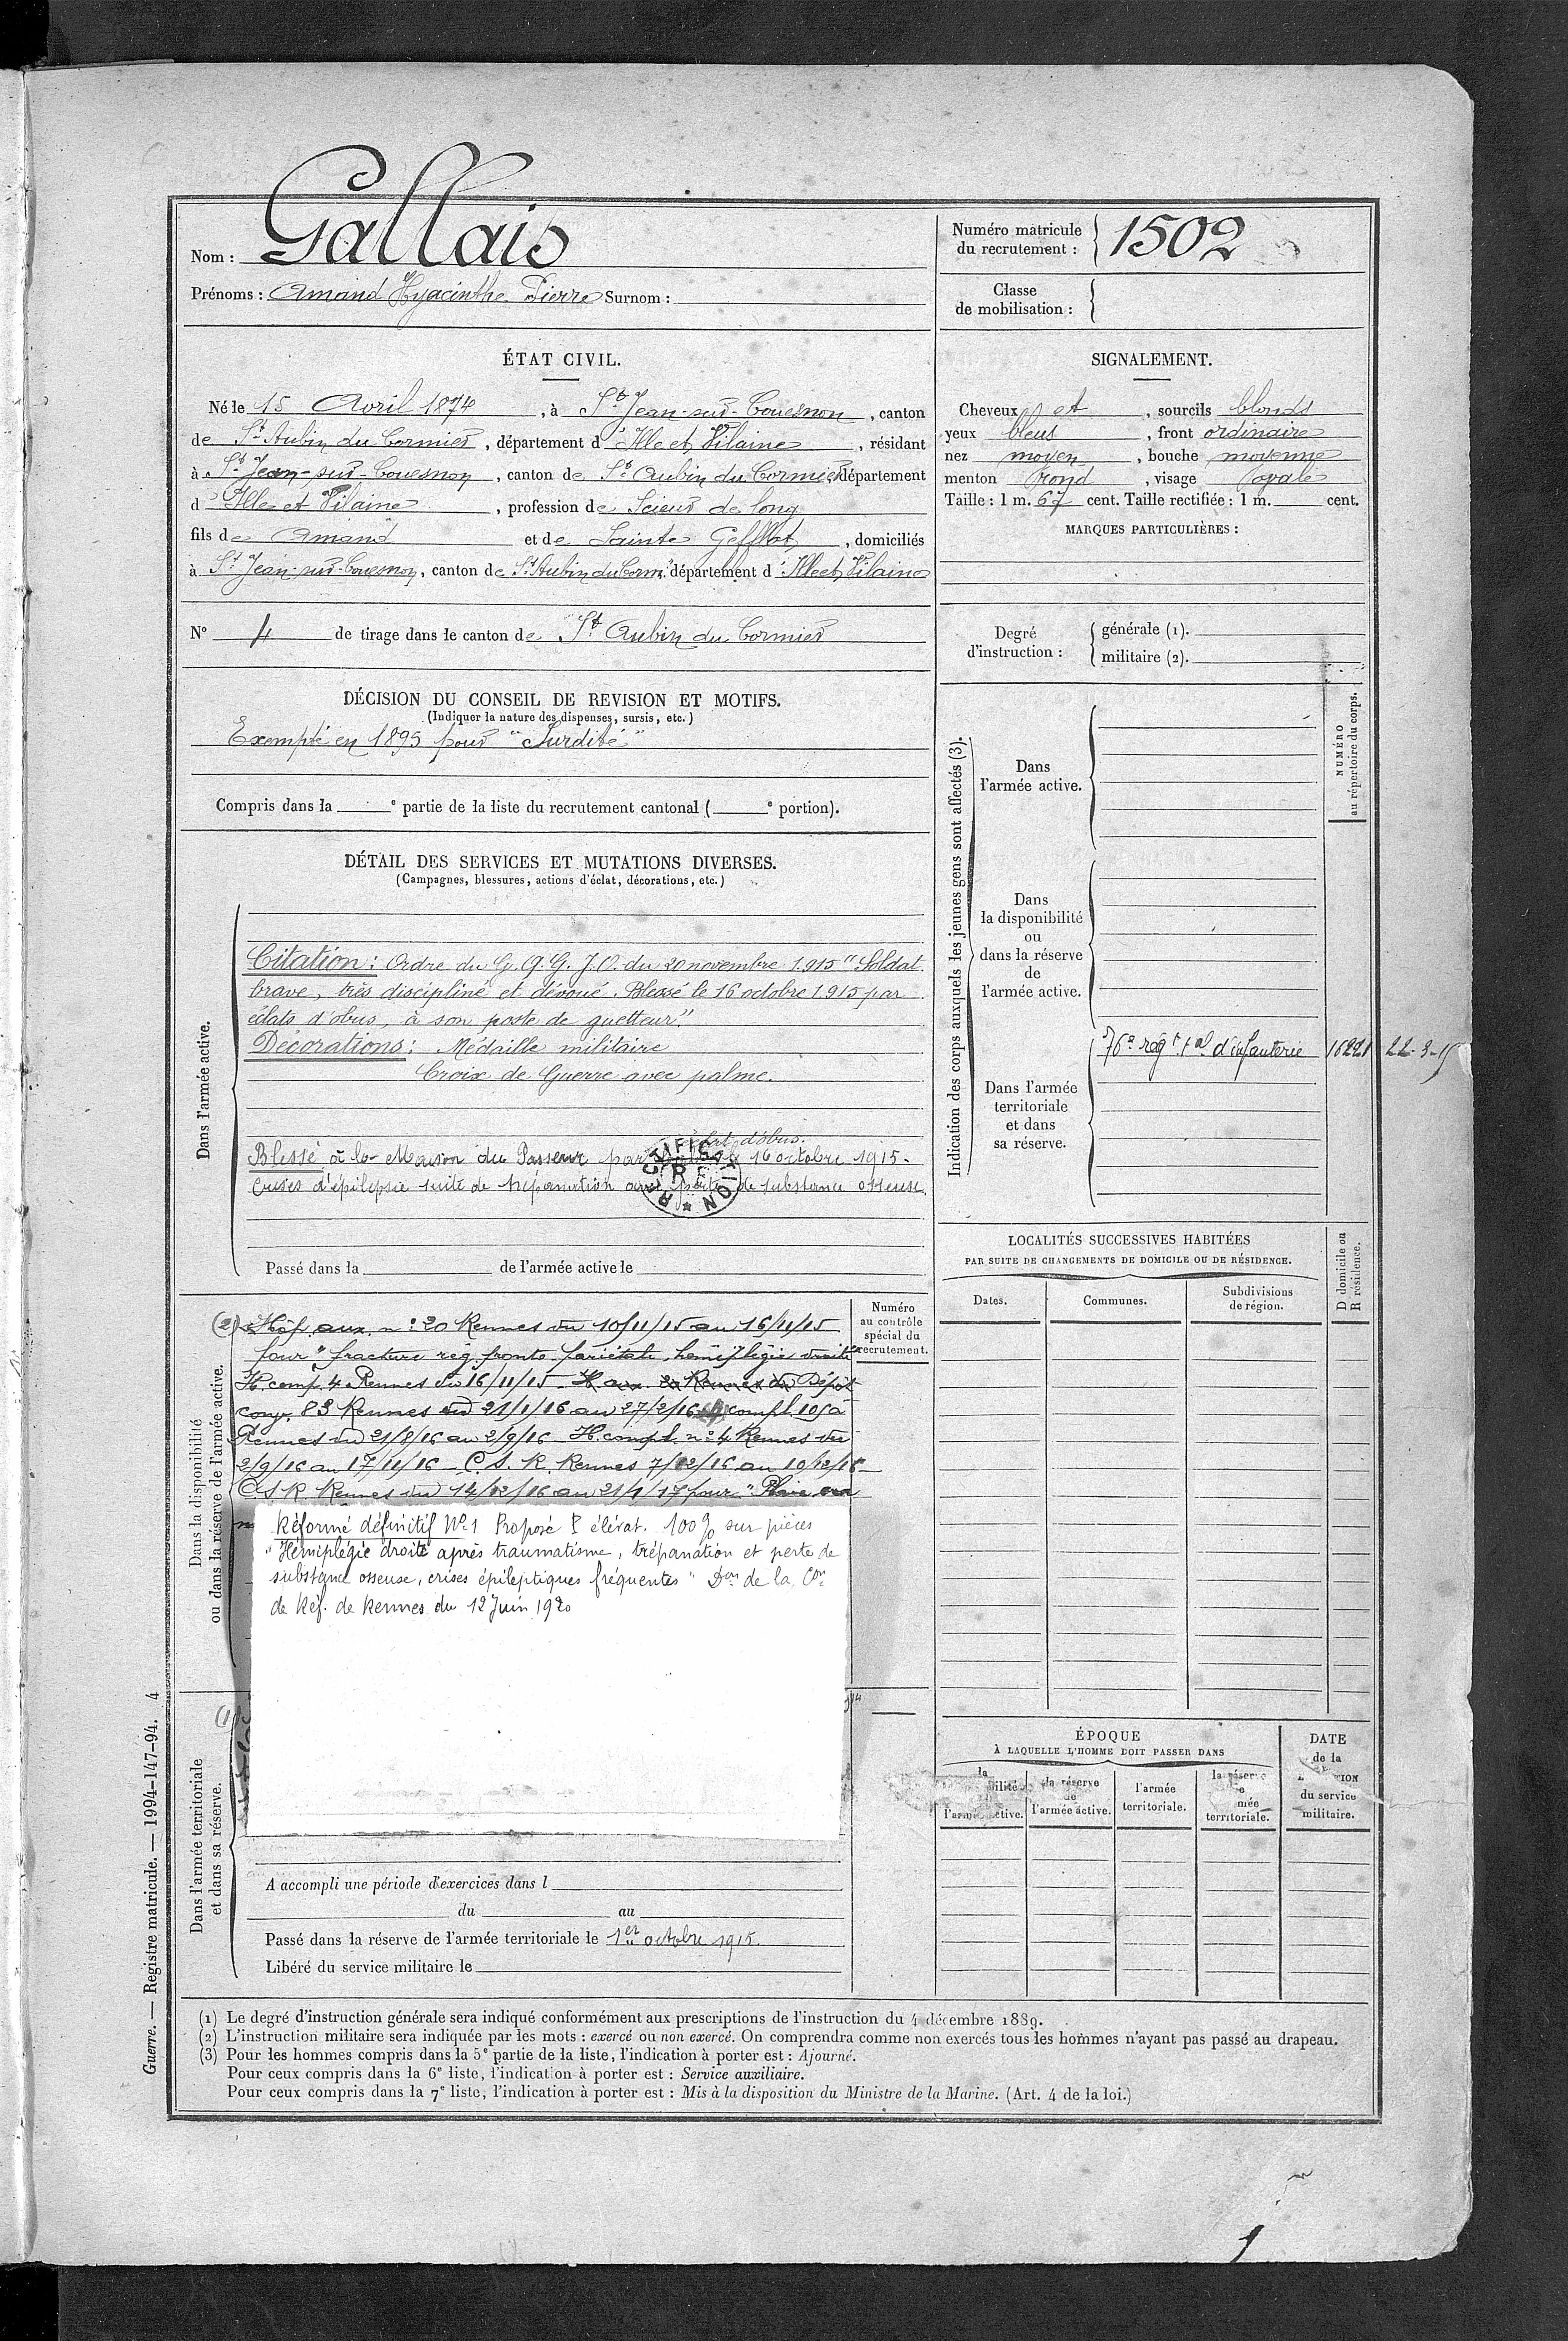 Nom : Gallais
Prénoms : Amand Hyacinthe Pierre Surnom :
Numéro matricule
du recrutement : 1502
Classe
de mobilisation :
ÉTAT CIVIL.
Né le 15 Avril 1874, à St Jean-sur-Couesnon, canton
de St Aubin du Cormier, département d'Ille et Vilaine, résidant
à St Jean-sur-Couesnon, canton de St Aubin du Cormier, département
d'Ille et Vilaine, profession de Scieur de long
fils de Amand et de Sainte Gefflot, domiciliés
à St Jean-sur-Couesnon, canton de St Aubin du Corm. département d'Ille et Vilaine
N° 4 de tirage dans le canton de St Aubin du Cormier
SIGNALEMENT.
Cheveux et, sourcils blonds
yeux bleus, front ordinaire
nez moyen, bouche moyenne
menton rond, visage ovale
Taille : 1 m. 67 cent. Taille rectifiée : 1 m. cent.
MARQUES PARTICULIÈRES :
Degré
d'instruction :
générale (1).
militaire (2).
DÉCISION DU CONSEIL DE REVISION ET MOTIFS.
(Indiquer la nature des dispenses, sursis, etc.)
Exempté en 1895 pour "Surdité"
Compris dans la e partie de la liste du recrutement cantonal ( e portion).
DÉTAIL DES SERVICES ET MUTATIONS DIVERSES.
(Campagnes, blessures, actions d'éclat, décorations, etc.)
Dans l'armée active.
Citation : Ordre du G.Q.G. J.O. du 20 novembre 1915 "Soldat
brave, très discipliné et dévoué. Blessé le 16 octobre 1915 par
éclats d'obus, à son poste de guetteur."
Décorations : Médaille militaire
Croix de Guerre avec palme.
éclat d'obus.
Blessé à la Maison du Passeur par le 16 octobre 1915.
Crises d'épilepsie suite de trépanation avec perte de substance osseuse.
RECTIFICATION
RF
Passé dans la de l'armée active le
Indication des corps auxquels les jeunes gens sont affectés (3).
NUMÉRO
au répertoire du corps.
Dans
l'armée active.
Dans
la disponibilité
ou
dans la réserve
de
l'armée active.
Dans l'armée
territoriale
et dans
sa réserve.
76e régt tal d'infanterie 16221 22-3-15
Dans la disponibilité
ou dans la réserve de l'armée active.
Numéro
au contrôle
spécial du
recrutement.
(2) Hôp. aux. n° 20 Rennes du 10/11/15 au 16/11/15
pour "fracture rég. fronto-pariétale, hémiplégie droite
H. comp. 4 Rennes du 16/11/15 - H. aux. Rennes du Dépôt
conv. 83 Rennes du 21/1/16 au 27/2/16 H compl. 105 à
Rennes du 21/8/16 au 2/9/16 - H. compl. n° 4 Rennes du
2/9/16 au 17/11/16 - C.S.R. Rennes 7/12/16 au 10/12/16 -
C.S.R Rennes du 14/12/16 au 21/1/17 pour "Plaie
Réformé définitif N° 1 Proposé P élévat. 100% sur pièces
"Hémiplégie droite après traumatisme, trépanation et perte de
substance osseuse, crises épileptiques fréquentes" Don de la Con
de Réf. de Rennes du 12 Juin 1920
(1)
Dans l'armée territoriale
et dans sa réserve.
A accompli une période d'exercices dans l
du au
Passé dans la réserve de l'armée territoriale le 1er octobre 1915.
Libéré du service militaire le
LOCALITÉS SUCCESSIVES HABITÉES
PAR SUITE DE CHANGEMENTS DE DOMICILE OU DE RÉSIDENCE.
D domicile ou
R résidence.
Dates. Communes. Subdivisions
de région.
ÉPOQUE
À LAQUELLE L'HOMME DOIT PASSER DANS
la
l'armée active.
la réserve
de
l'armée active.
l'armée
territoriale.
la réserve
territoriale.
DATE
de la
du service
militaire.
(1) Le degré d'instruction générale sera indiqué conformément aux prescriptions de l'instruction du 4 décembre 1889.
(2) L'instruction militaire sera indiquée par les mots : exercé ou non exercé. On comprendra comme non exercés tous les hommes n'ayant pas passé au drapeau.
(3) Pour les hommes compris dans la 5e partie de la liste, l'indication à porter est : Ajourné.
Pour ceux compris dans la 6e liste, l'indication à porter est : Service auxiliaire.
Pour ceux compris dans la 7e liste, l'indication à porter est : Mis à la disposition du Ministre de la Marine. (Art. 4 de la loi.)
Guerre. — Registre matricule. — 1994-147-94. 4